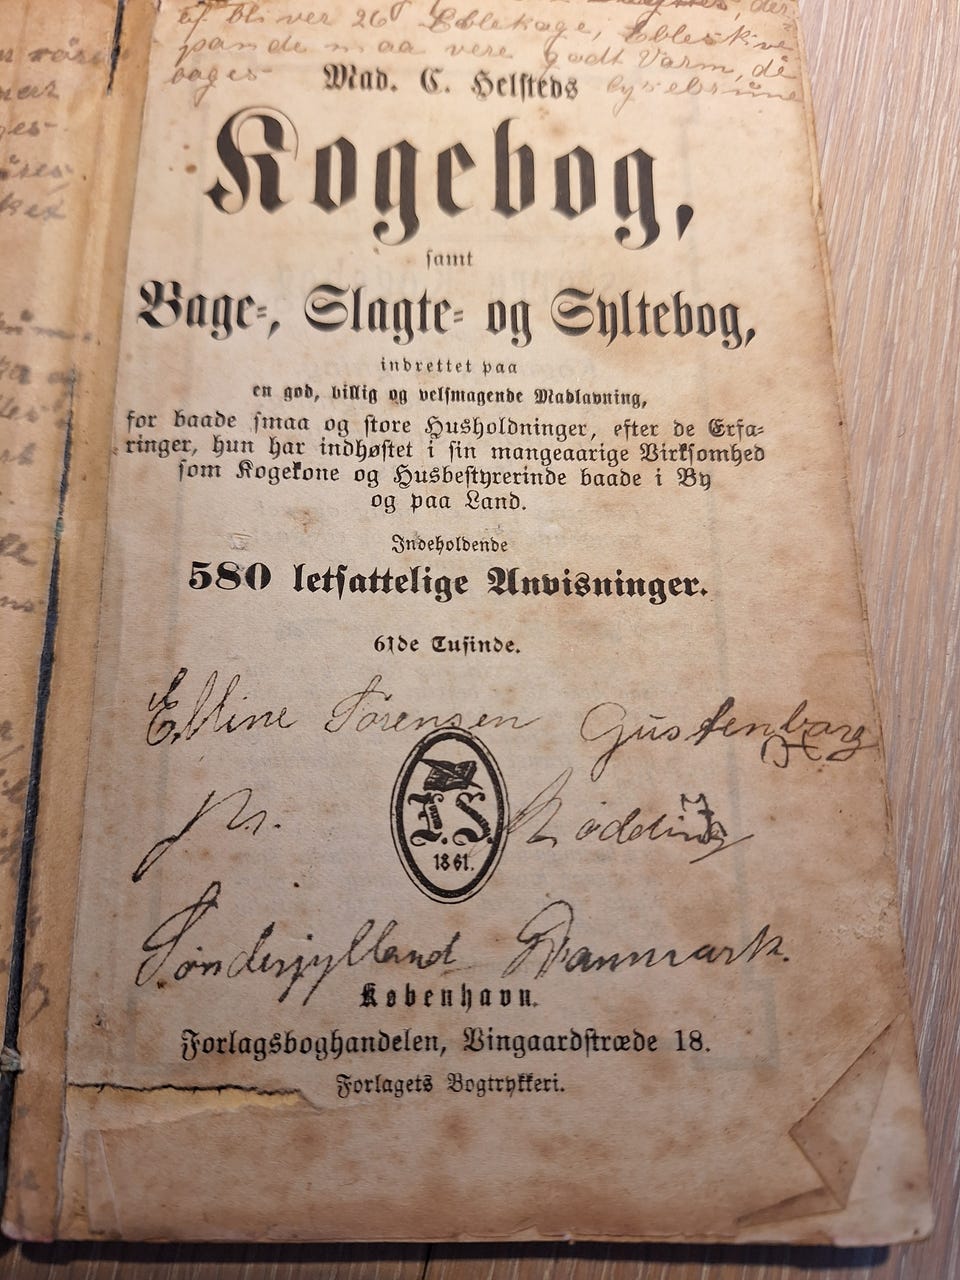 af bliver 26 Eblekage, Ebleskive
pande maa vere godt Varm, de
bages lysebrune
Mad. C. Helsteds
Kogebog,
samt
Bage-, Slagte- og Syltebog,
indrettet paa
en god, billig og velsmagende Madlavning,
for baade smaa og store Husholdninger, efter de Erfa-
ringer, hun har indhøstet i sin mangeaarige Virksomhed
som Kogekone og Husbestyrerinde baade i By
og paa Land.
Indeholdende
580 letfattelige Anvisninger.
61de Tusinde.
Elline Sørensen Gustenbarg
pr. Rødding
F. S.
1861.
Sønderjylland Danmark.
København.
Forlagsboghandelen, Vingaardstræde 18.
Forlagets Bogtrykkeri.